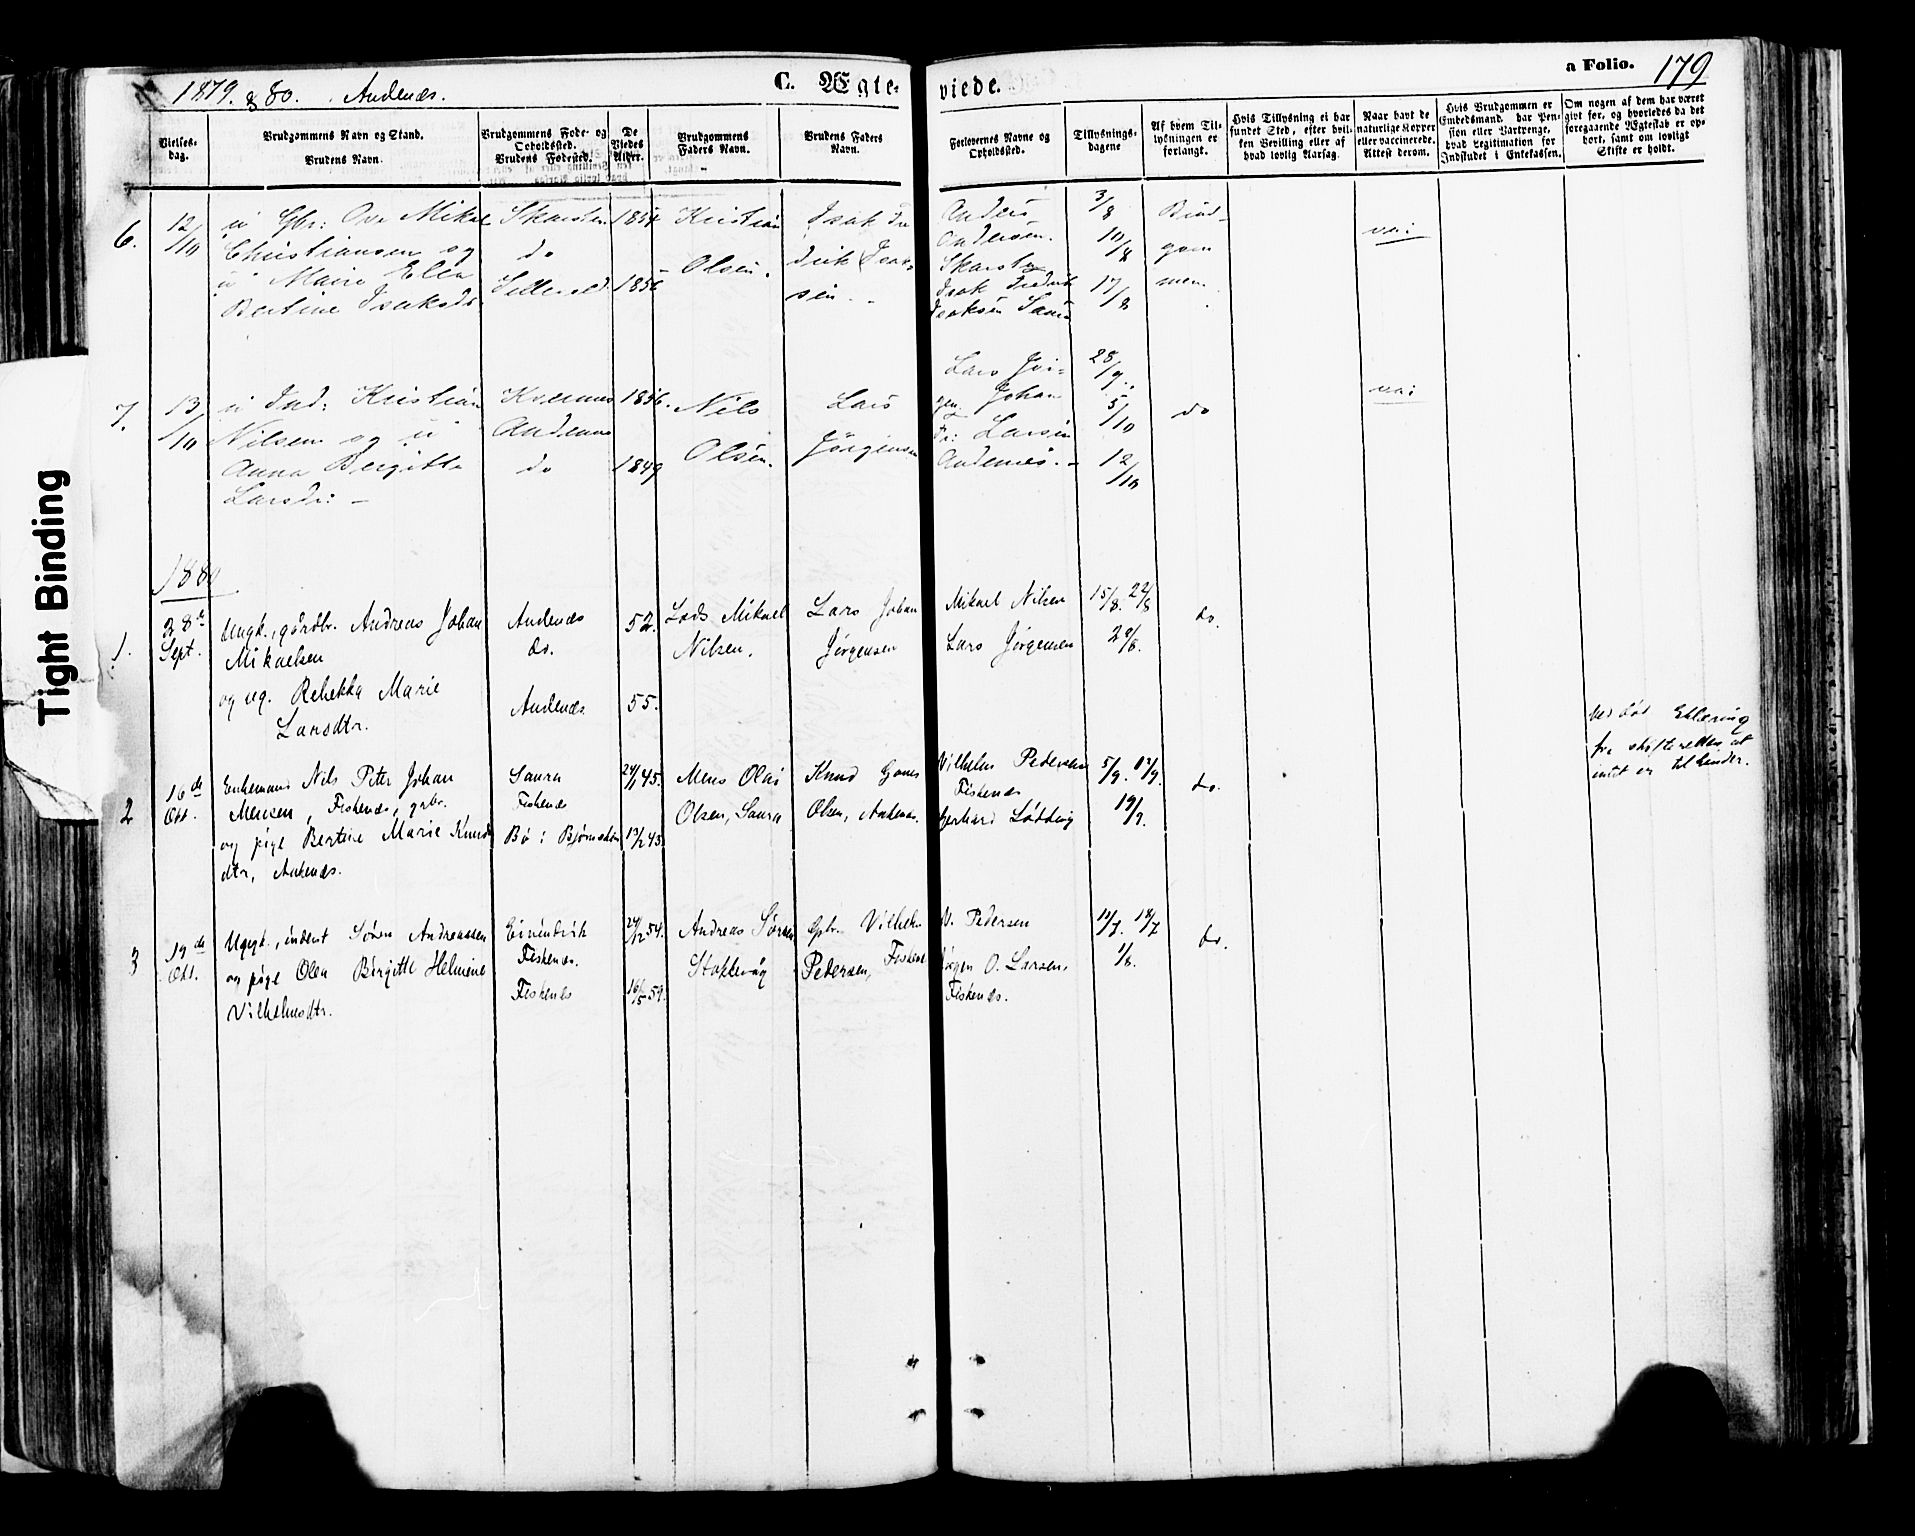 1879. & 80. Andenæs.
C. Ægte-
viede.
a Folio. 179
Vielses-
dag.
Brudgommens Navn og Stand.
Brudens Navn.
Brudgommens Føde- og
Opholdssted.
Brudens Fødested.
De
Viedes
Alder.
Brudgommens
Faders Navn.
Brudens Faders
Navn.
Forlovernes Navne og
Opholdssted.
Tillysnings-
dagene
Af hvem Til-
lysningen er
forlangt.
Hvis Tillysning ei har
fundet Sted, efter hvil-
ken Bevilling eller af
hvad lovlig Aarsag.
Naar havt de
naturlige Kopper
eller vaccinerede.
Attest derom.
Hvis Brudgommen er
Embedsmand, har Pen-
sion eller Vartpenge,
hvad Legitimation for
Indskudet i Enkekassen.
Om nogen af dem har været
givt før, og hvorledes da det
foregaaende Ægteskab er op-
hørt, samt om lovligt
Skifte er holdt.
6.
12/10
Ove Mikal
Christiansen og
Marie Elen
Bertine Isaksdr.
do
1854
1856
Kristian
Olsen.
Isak Fre
drik Isak-
sen.
Anders
Andersen.
Isak Fredrik
Isaksen
3/8
10/8
17/8
Brud-
gom
men
va:
7.
13/10
ú Ind: Kristian
Nilsen og ú
Anna Bergitte
Larsdr: —
Andenæs
do
1856.
1849
Nils
Olsen.
Lars
Jörgensen
Lars Jör-
gen. Johan
Fr: Larsen
Andenæs. -
28/9.
5/10
12/10
do
va:
1880
1.
28de
Sept.
Ungk., gårdbr. Andreas Johan
Mikaelsen
og ug. Rebekka Marie
Larsdtr.
Andenæs
do.
Andenæs
52.
55.
Lods Mikael
Nilsen.
Lars Johan
Jørgensen
Mikael Nilsen
Lars Jørgensen
15/8. 22/8
29/8.
do.
2
16de
Okt.
Enkemand Nils Peter Johan
Mensen, Fiskenæs, grbr.
og pige Bertine Marie Knuds
dtr, Aakenæs.
Saura
Fiskenæs
Bø i Bjørnskin
24/11 45.
13/2 43.
Mens Olai
Olsen, Saura
Knud
Olsen, Aakenæs.
Vilhelm Pedersen
Fiskenæs
Gerhard Lødding
5/9. 12/9.
19/9.
do.
ved Erklæring
fra skifteretten at
intet er til hinder.
3
19de
Okt.
Ugk., inderst Søren Andreassen
og pige Olea Birgitte Helmine
Vilhelmsdtr.
Eivindvik
Fiskenæs.
Fiskenæs
24/12 54.
16/5 59.
Andreas Søren
Stoplevåg
Gbr. Vilhelm
Pedersen, Fiskenæs
V. Pedersen
Jørgen O. Larsen,
Fiskenæs.
11/7. 18/7
1/8.
do.
Tight Binding